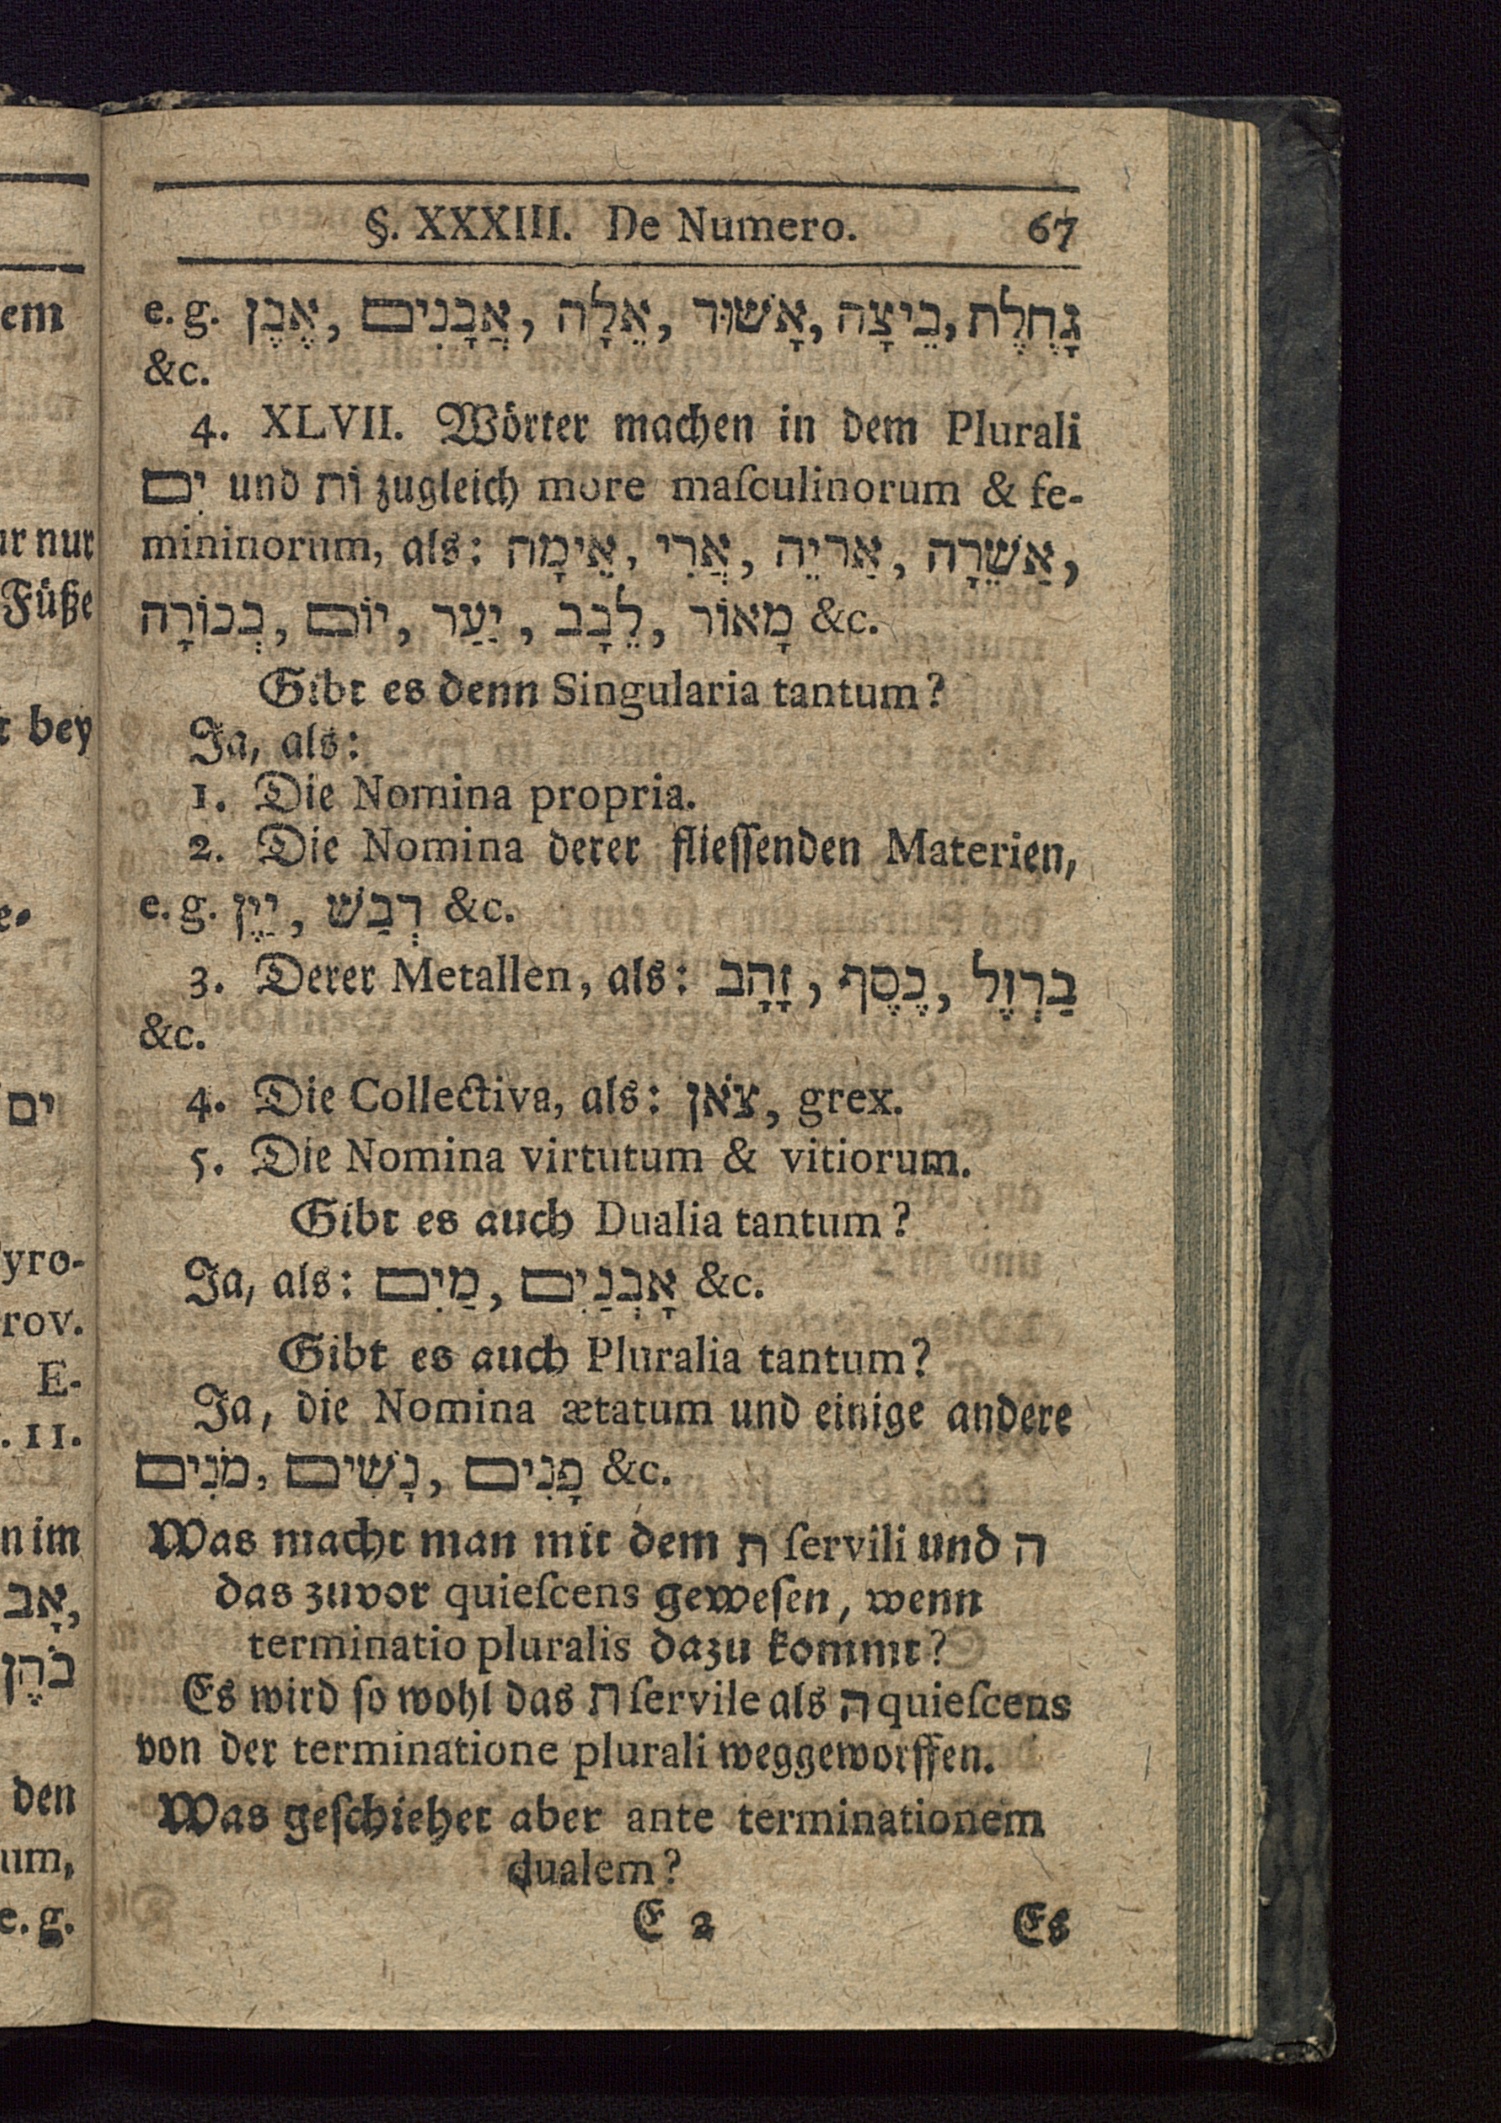 §. XXXIII. De Numero. 67
e. g. אֶבֶן, אֲבָנִים, אֵלָה, אָשׁוּר, בֵיצָה, גָחֶלֶת
&c.
4. XLVII. Wörter machen in dem Plurali
יִם und וֹת zugleich more maſculinorum & fe-
mininorum, als: אֵימָה, אֲרִי, אַריֵה, אַשֵׁרָה,
בְכוֹרָה, יוֹם, יַעַר, לֵבָב, מָאוֹר &c.
Gibt es denn Singularia tantum?
Ja, als:
1. Die Nomina propria.
2. Die Nomina derer flieſſenden Materien,
e. g. יַיֶן, דְבַשׁ &c.
3. Derer Metallen, als: זָהָב, כֶסֶף, בַרְזֶל
&c.
4. Die Collectiva, als: צֹאן, grex.
5. Die Nomina virtutum & vitiorum.
Gibt es auch Dualia tantum?
Ja, als: מַיִם, אָבְנַיִם &c.
Gibt es auch Pluralia tantum?
Ja, die Nomina ætatum und einige andere
מֹנִים, נָשִׁים, פָנִים &c.
Was macht man mit dem ת ſervili und ה
das zuvor quieſcens geweſen, wenn
terminatio pluralis dazu kommt?
Es wird ſo wohl das ת ſervile als ה quieſcens
von der terminatione plurali weggeworffen.
Was geſchiehet aber ante terminationem
dualem?
E 2 Es
em
ur nur
Füße
t bey
e-
ים
yro-
rov.
E-
. 11.
n im
אָב,
כֹהֶן
den
um,
e. g.